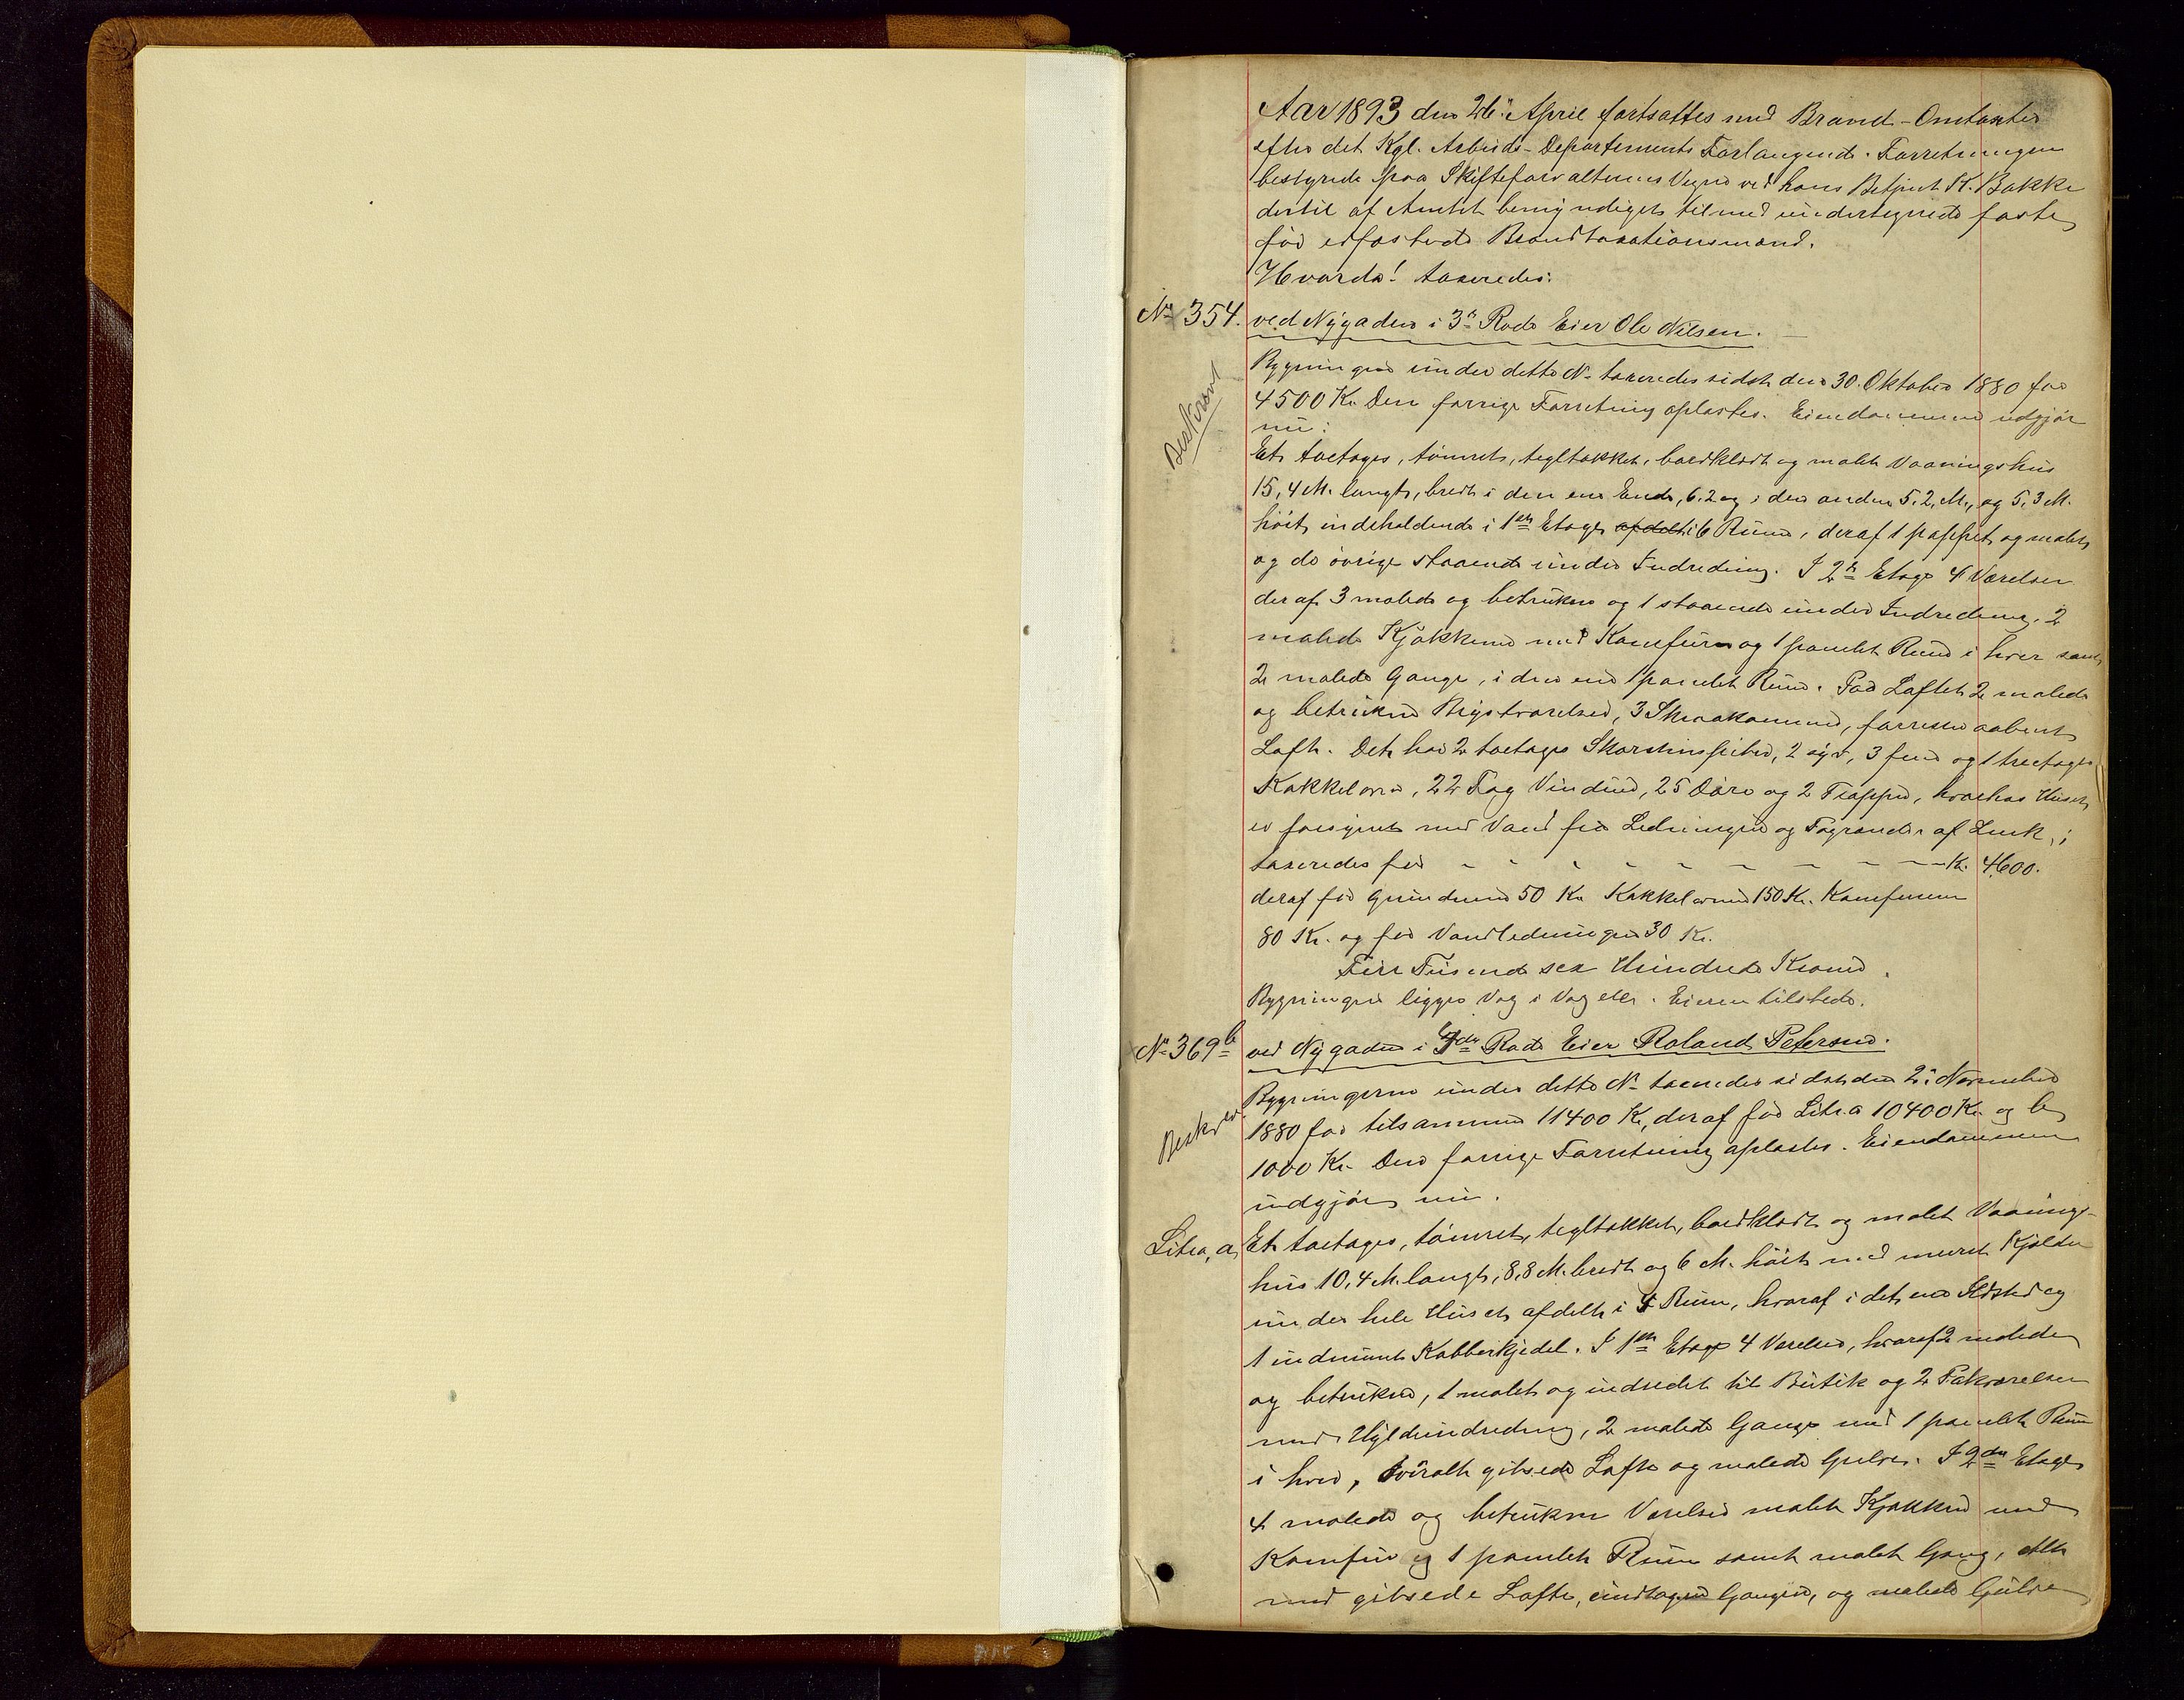 Aar 1893 den 26. April fortsattes med Brand-Omtaxter
efter det Kgl. Arbeids-Departements Forlangende. Forretningen
bestyrede paa Skifteforvalterens Vegne ved hans Betjent K. Bakke
dertil af Amtet bemyndiget tilmed undertegnede faste
for edfæstede Brandtaxationsmænd.
Hvorda! taxeredes:
No 354. ved Nygaden i 3de Rode Eier Ole Nilsen.
Beskrevet
Bygningen under dette No taxeredes sidst den 30. Oktober 1880 for
4500 Kr. Den forrige Forretning oplæstes. Eiendommene udgjør
nu:
Et toetages, tømret, tegltækket, bordklædt og malet Vaaningshus
15,4 M. langt, bredt i den ene Ende, 6.2 og i den anden 5.2, M., og 5,3 M.
høit indeholdende i 1ste Etage afdelt i 6 Rum, deraf 1 pappet og malet
og de øvrige staaende under Indredning. I 2den Etage 4 Værelser
deraf 3 malede og betrukne og 1 staaende under Indredning, 2
malede Kjøkkener med Komfurer og 1 panelet Rum i hver samt
2 malede Gange, i den ene 1 panelet Rum. Paa Loftet 2 malede
og betrukne Brystværelser, 3 Skraakammere, forresten aabent
Loft. Det har 2 toetages Skorstenspiber, 2 , 3 fem og 1 treetages
Kakkelovne, 22 Fag Vinduer, 25 Døre og 2 Trapper, hvorhos Huset
er forsynet med Vand fra Ledningen og Tagrender af Zink, i
taxeredes for - - - - - - - - - - Kr. 4600.
deraf for Grundmuren 50 Kr. Kakkelovnene 150 Kr. Komfurene
80 Kr. og for Vandledningen 30 Kr.
Fire Tusende sex Hundrede Kroner.
Bygningen ligger Væg i Væg etc. Eieren tilstede.
No 369 b ved Nygaden i 4de Rode Eier Roland Petersen.
Beskrevet
Bygningerne under dette No taxeredes sidst den 2. November
1880 for tilsammen 11400 Kr, deraf for Litr. a 10400 Kr. og b
1000 Kr. Den forrige Forretning oplæstes. Eiendommen
udgjør nu.
Litra, a, Et toetages, tømret, tegltækket, bordklædt og malet Vaanings-
hus 10,4 M. langt, 8,8 M. bredt og 6 M. høit med muret Kjelder
under hele Huset afdelt i 4 Rum, hvoraf i det ene Ildsted og
1 indmuret Kobberkjedel. I 1ste Etage 4 Værelser, hvoraf 2 malede
og betrukne, 1 malet og indredet til Butik og 2 Pakværelser
med Hyldeindredning, 2 malede Gange med 1 panelet Rum
i hver, overalt gibsede Lofte og malede Gulve. I 2den Etage
4 malede og betrukne Værelser malet Kjøkken med
Komfur og 1 panelet Rum samt malet Gang, Alt
med gibsede Lofte, undtagen Gangen, og malede Gulve